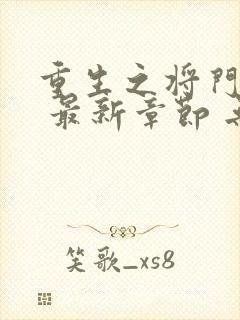 重生之将门
最新章节
笑歌_xs8